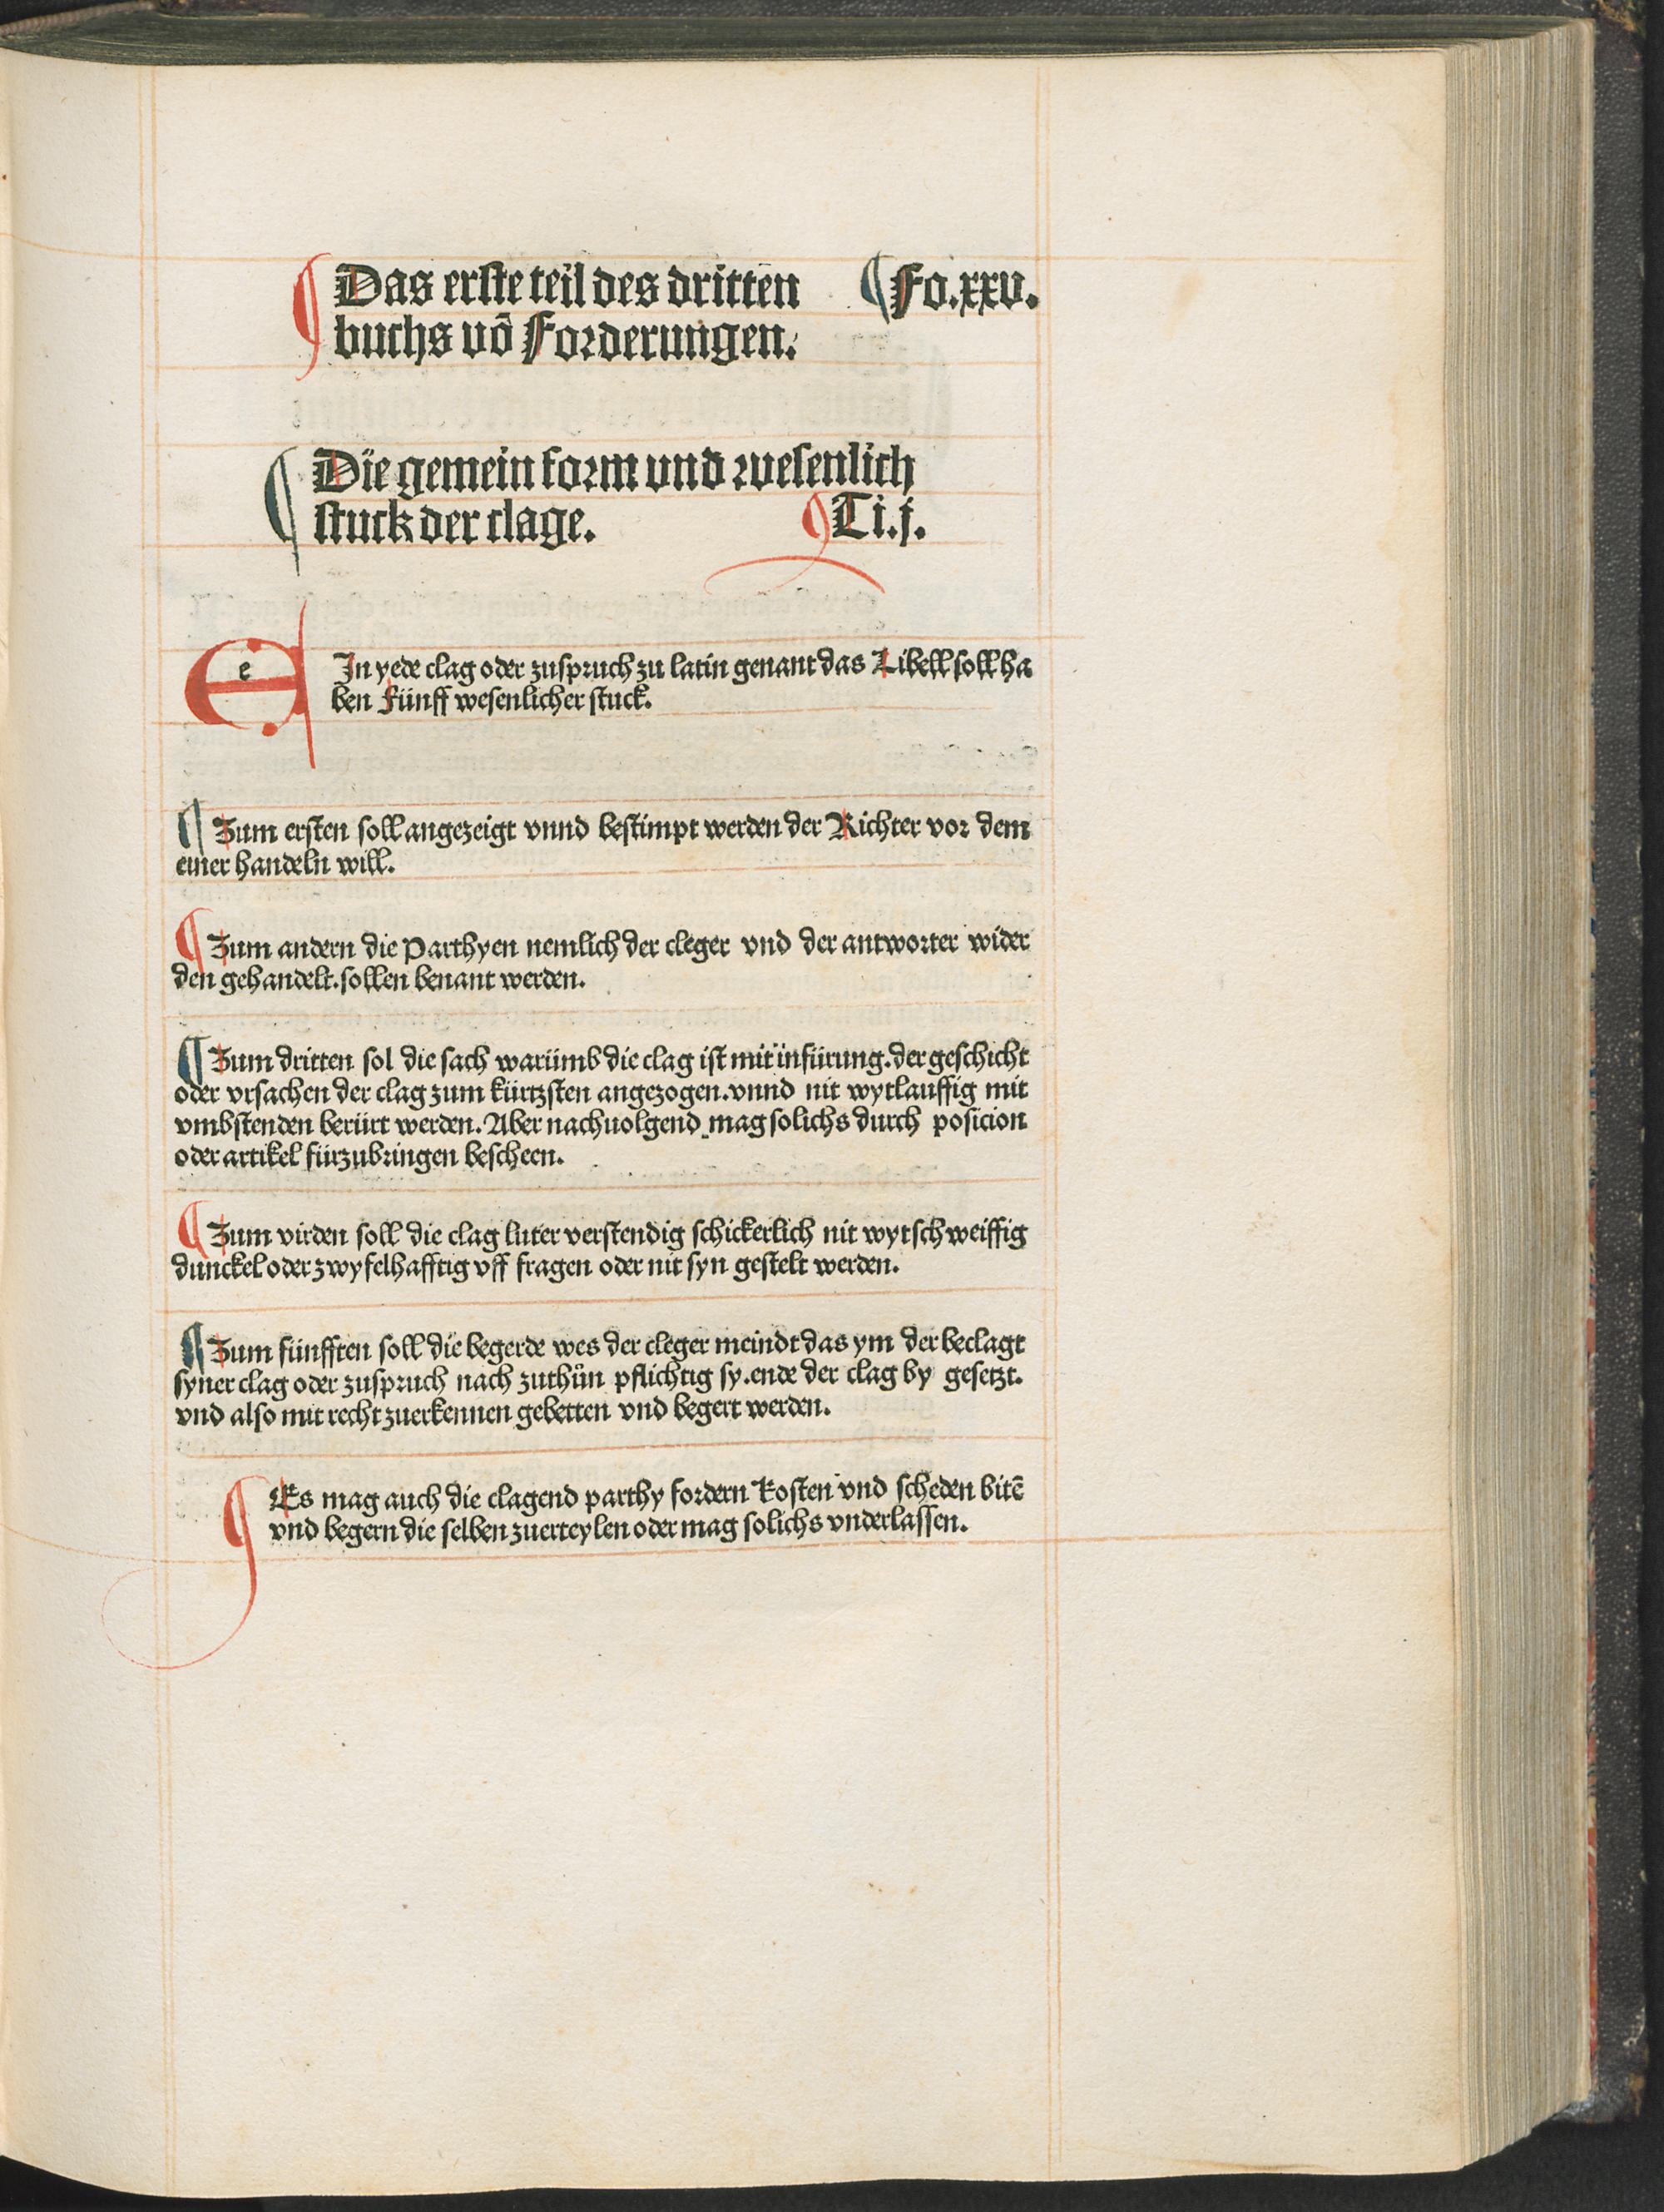 Das erste teil des dritten ¶ Fo. xxv.
buchs vō Forderungen.
¶ Die gemein form vnd wesenlich
stuck der clage. ¶ Ti. j.
EIn yede clag oder zuspruch zu latin genant das Libell soll ha
ben fünff wesenlicher stuck.
¶ Zum ersten soll angezeigt vnnd bestimpt werden der Richter vor dem
einer handeln will.
¶ Zum andern die Parthyen nemlich der cleger vnd der antworter wider
den gehandelt. sollen benant werden.
¶ Zum dritten sol die sach warümb die clag ist mit infürung. der geschicht
oder vrsachen der clag zum kürtzsten angezogen. vnnd nit wytlauffig mit
vmbstenden berürt werden. Aber nachuolgend mag solichs durch posicion
oder artikel fürzubringen bescheen.
¶ Zum virden soll die clag luter verstendig schickerlich nit wytschweiffig
dunckel oder zwyfelhafftig vff fragen oder nit syn gestelt werden.
¶ Zum fünfften soll die begerde wes der cleger meindt das ym der beclagt
syner clag oder zuspruch nach zuthůn pflichtig sy. ende der clag by gesetzt.
vnd also mit recht zuerkennen gebetten vnd begert werden.
¶ Es mag auch die clagend parthy fordern kosten vnd scheden bitē
vnd begern die selben zuerteylen oder mag solichs vnderlassen.